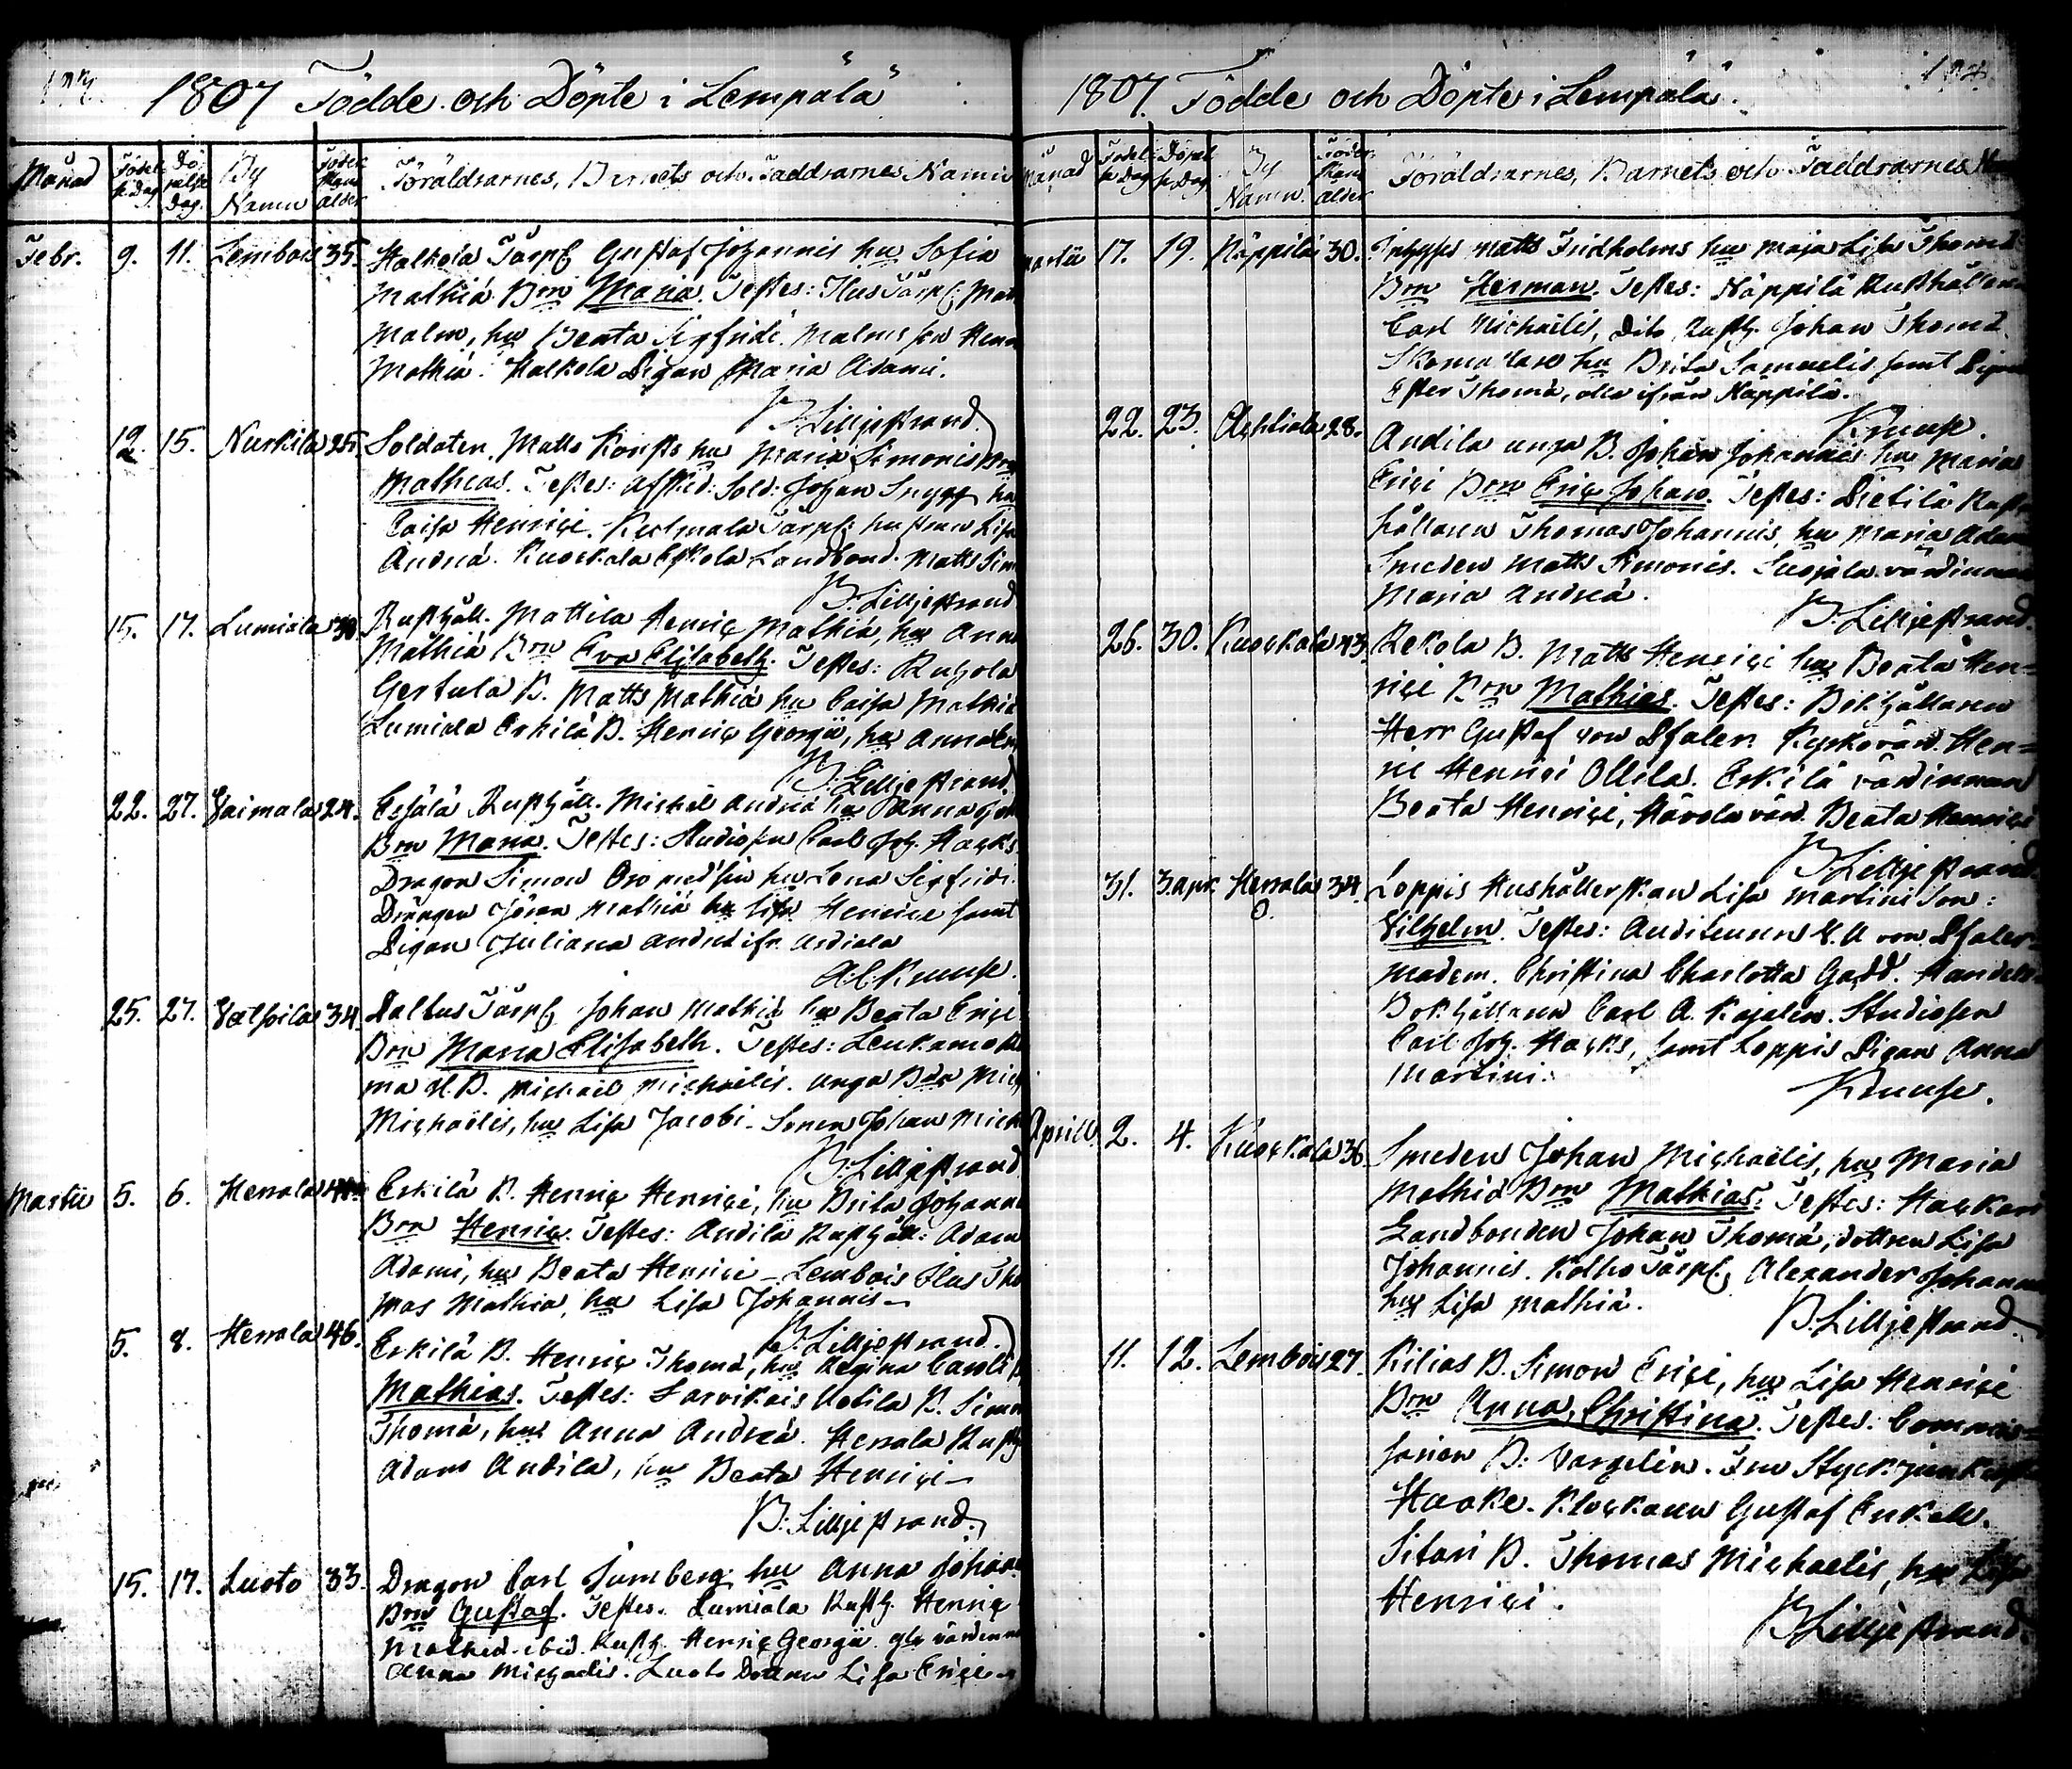 1807 Födde och Döpte i Lempälä
Månad Födelse Dag Döpelse Dag. By Namn Föder. skans ålder Föräldrarnes, Barnets och Faddrarnes Namn
Febr. 9. 11. Lembois 35. Halkola Torp. Gustaf Johannis hu Sofia
Mathiæ Brn Maria. Testes: Ilus Torp. Matts
Malm, hu Beata Sigfridi. Malms son Henr
Mathiæ. Halkola Pigan Maria Adami.
B. Lilljestrand.
12. 15. Nurkila 25. Soldaten Matts Korps hu Maria Simonis Brn
Mathias. Testes: Afsked: Sold: Johan Snygg hu
Caisa Henrici. Kulmala Torp: hustrun Lisa
Andreæ. Kuockala Eskola Landbond. Matts Sim
B. Lilljestrand
15. 17. Lumiala 30 Rusthåll. Mattila Henric Mathiæ, hu Anna
Mathiæ Brn Eva Elisabeth. Testes: Ruhola
Gertula B. Matts Mathiæ hu Caisa Mathiæ
Lumiala Erkilä B. Henric Georgii, hu Anna
B. Lilljestrand.
22. 27. Vaimala 24. Rusthåll. Michel Andreæ hu Anna
Brn Maria. Testes: Studiosen Carl Joh. Hacks
Dragon Simon hu Lena Sigfridi.
Drängen Jöran Mathiæ hu Lisa Henrici samt
Pigan Juliana Andreæ ifr. Ardiala
A.C. Kruuse.
25. 27. 34 Torp. Johan Mathiæ hu Beata Erici
Brn Maria Elisabeth. Testes:
B. Michael Michaëlis. unga Bdn Mich
Michaëlis, hu Lisa Jacobi. Sonen Johan Mich
B: Lilljestrand
Martii 5. 6. Herrala Erkilä B. Henric Henrici, hu Brita Johannis
Brn Henric. Testes: Andila Rusthåll: Adam
Adami, hu Beata Henrici – Lembois Ilus Tho
mas Mathiæ, hu Lisa Johannis –
B. Lilljestrand.
5. 8. Herrala 46. Erkilä B. Henric Thomæ, hu Regina Caroli B
Mathias. Testes: Sarvikais Uotila B. Simon
Thomæ, hu Anna Andreæ. Herrala Rusth
Adam Andila, hu Beata Henrici –
B. Lilljestrand.
15. 17. Luoto 33. Dragon Carl hu Anna Johan
Brn Gustaf. Testes. Lumiala Rusth. Henric
Mathiæ. ibid. Rusth. Henric Georgii. värdinn
Anna Michaelis. Luoto Lisa Erici
1807. Födde och Döpte i Lempälä.
Månad Födelse Dag Döpelse Dag By Namn. Föder. skans ålder Föräldrarnes, Barnets och Faddrarnes
Martii 17. 19. Näppilä 30. Matts Fridholms hu Maja Lisa Thomæ
Brn Herman. Testes: Näppilä Rusthållaren
Carl Michaëlis, dito Rusth. Johan Thomæ
Skomakare hu Brita Samuelis samt Pigan
Ester Thomæ, alla ifrån Näppilä.
Kruuse.
22. 23. Achtiala 28. Andila unga B. Johan Johannis hu Maria
Erici Brn Eric Johan. Testes: Pietilä Rust
hållaren Thomas Johannis, hu Maria Adam
Smeden Matts Simonis. värdinnan
Maria Andreæ.
B. Lilljestrand.
26. 30. Kuockala 43. Rekola B. Matts Henrici hu Beata Hen=
rici Brn Mathias. Testes: Bokhållaren
Herr Gustaf von Pfaler. Kyrkovärd. Hen=
ric Henrici Ollila. Erkilä värdinnan
Beata Henrici, värd. Beata Henrici
B. Lilljestrand.
31. 3. apr. Herrala 34. Loppis Hushållerskan Lisa Martini Son:
Vilhelm. Testes: Auditeuren G. A von Pfaler=
Madem. Christina Charlotta Gadd. Handels=
Bokhållaren Carl A. Kajalén. Studiosen
Carl Joh. Hacks, samt Loppis Pigan Anna
Martini.
Kruuse.
Aprill. 2. 4. Kuockala 36 Smeden Johan Michaëlis, hu Maria
Mathiæ Brn Mathias. Testes: Hackari
Landbonden Johan Thomæ, dottren Lisa
Johannis. Kolho Torp., Alexander Johannis
hu Lisa Mathiæ.
B. Lilljestrand.
11. 12. Lembois 27. Kilias B. Simon Erici, hu Lisa Henrici
Brn Anna Christina. Testes: Commis=
sarien B. Vargelin. Fru
Haake. Klockaren Gustaf Enkell.
Sitari B. Thomas Michaelis, hu Lisa
Henrici.
B Lilljestrand.